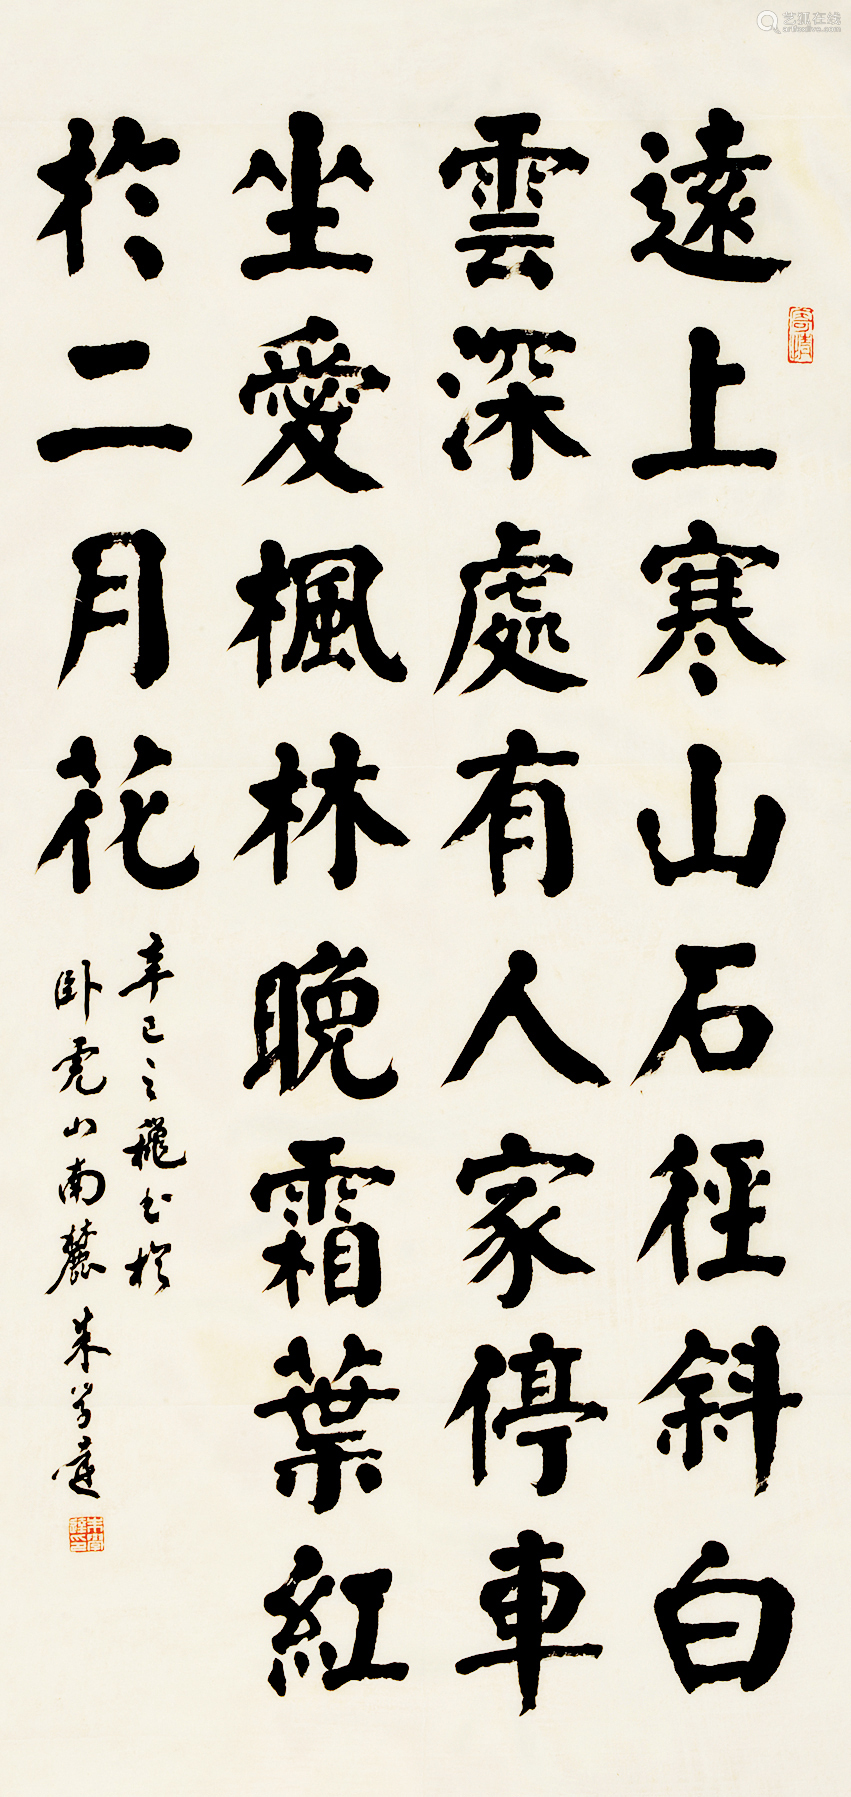 遠上寒山石徑斜白
雲深處有人家停車
坐愛楓林晚霜葉紅
於二月花
辛巳之秋書於
卧虎山南麓朱學達
艺狐在线